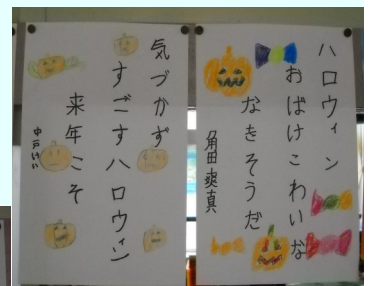 ハロウィン
おばけこわいな
なきそうだ
角田爽真
気づかず
すごすハロウィン
来年こそ